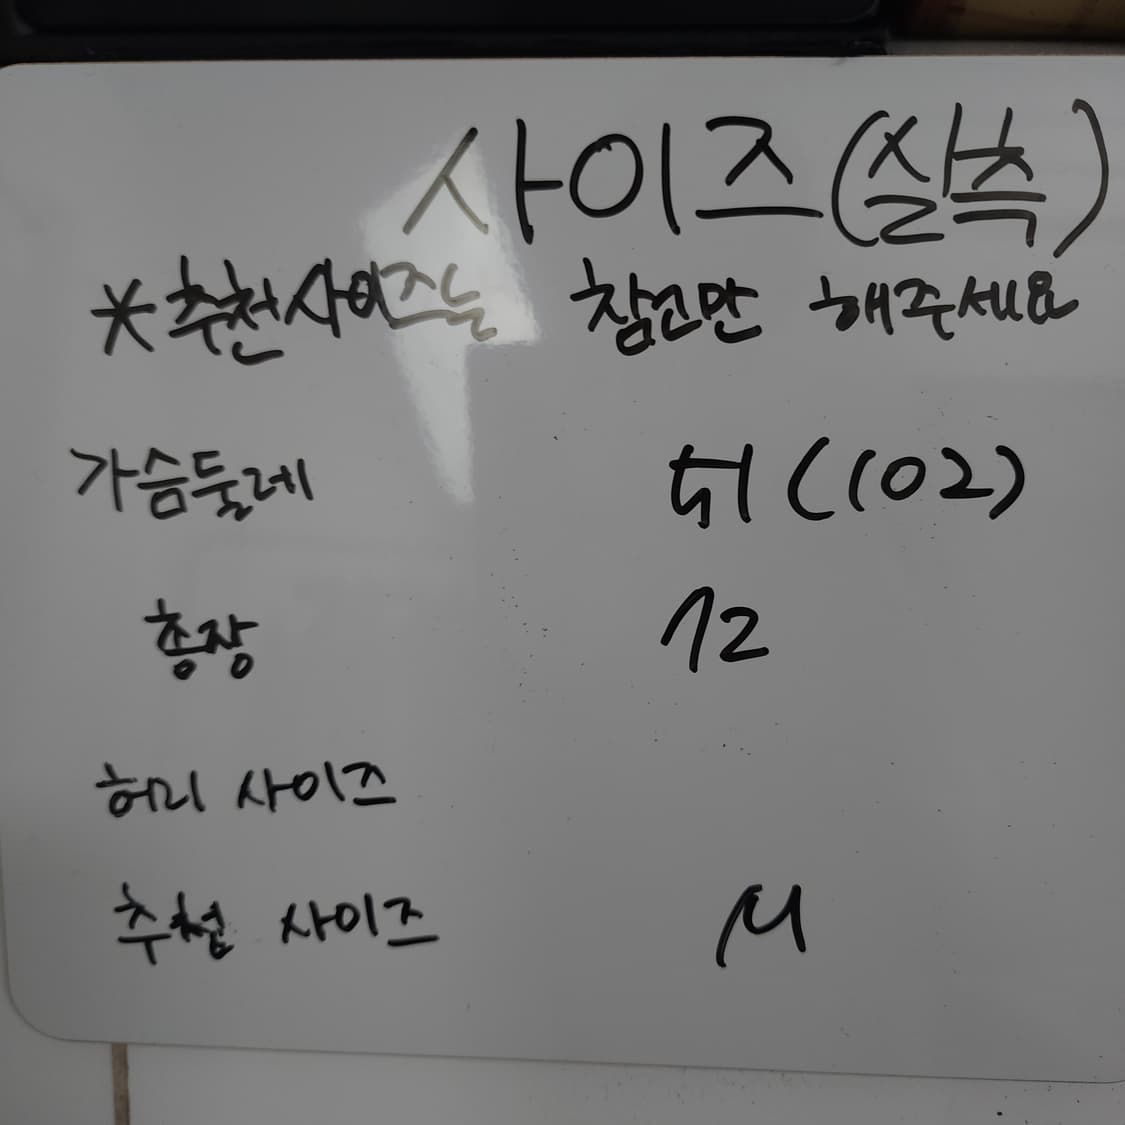 사이즈(실측)
*추천사이즈는 참고만 해주세요
가슴둘레 51(102)
총장 72
허리 사이즈
추천 사이즈 M